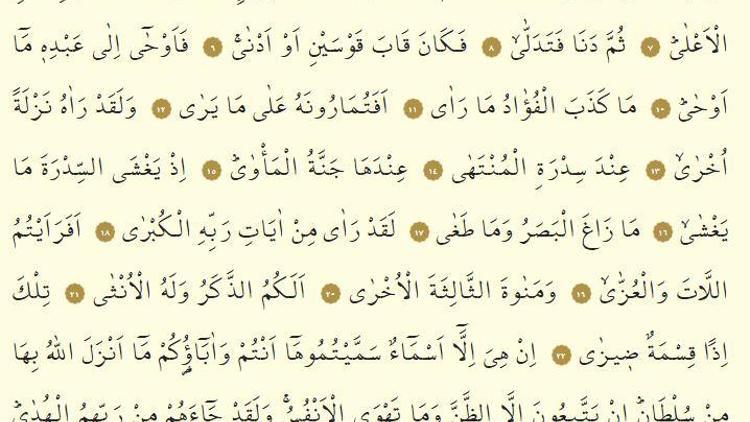 الْاَعْلٰىۜ ﴿٧﴾ ثُمَّ دَنَا فَتَدَلّٰىۙ ﴿٨﴾ فَكَانَ قَابَ قَوْسَيْنِ اَوْ اَدْنٰىۚ ﴿٩﴾ فَاَوْحٰٓى اِلٰى عَبْدِه۪ مَٓا
اَوْحٰىۜ ﴿١٠﴾ مَا كَذَبَ الْفُؤٰادُ مَا رَاٰى ﴿١١﴾ اَفَتُمَارُونَهُ عَلٰى مَا يَرٰى ﴿١٢﴾ وَلَقَدْ رَاٰهُ نَزْلَةً
اُخْرٰىۙ ﴿١٣﴾ عِنْدَ سِدْرَةِ الْمُنْتَهٰى ﴿١٤﴾ عِنْدَهَا جَنَّةُ الْمَأْوٰىۜ ﴿١٥﴾ اِذْ يَغْشَى السِّدْرَةَ مَا
يَغْشٰىۙ ﴿١٦﴾ مَا زَاغَ الْبَصَرُ وَمَا طَغٰى ﴿١٧﴾ لَقَدْ رَاٰى مِنْ اٰيَاتِ رَبِّهِ الْكُبْرٰى ﴿١٨﴾ اَفَرَاَيْتُمُ
اللَّاتَ وَالْعُزّٰىۙ ﴿١٩﴾ وَمَنٰوةَ الثَّالِثَةَ الْاُخْرٰى ﴿٢٠﴾ اَلَكُمُ الذَّكَرُ وَلَهُ الْاُنْثٰى ﴿٢١﴾ تِلْكَ
اِذًا قِسْمَةٌ ض۪يزٰى ﴿٢٢﴾ اِنْ هِيَ اِلَّٓا اَسْمَٓاءٌ سَمَّيْتُمُوهَٓا اَنْتُمْ وَاٰبَٓاؤُ۬كُمْ مَٓا اَنْزَلَ اللّٰهُ بِهَا
مِنْ سُلْطَانٍۜ اِنْ يَتَّبِعُونَ اِلَّا الظَّنَّ وَمَا تَهْوَى الْاَنْفُسُۚ وَلَقَدْ جَٓاءَهُمْ مِنْ رَبِّهِمُ الْهُدٰىۜ